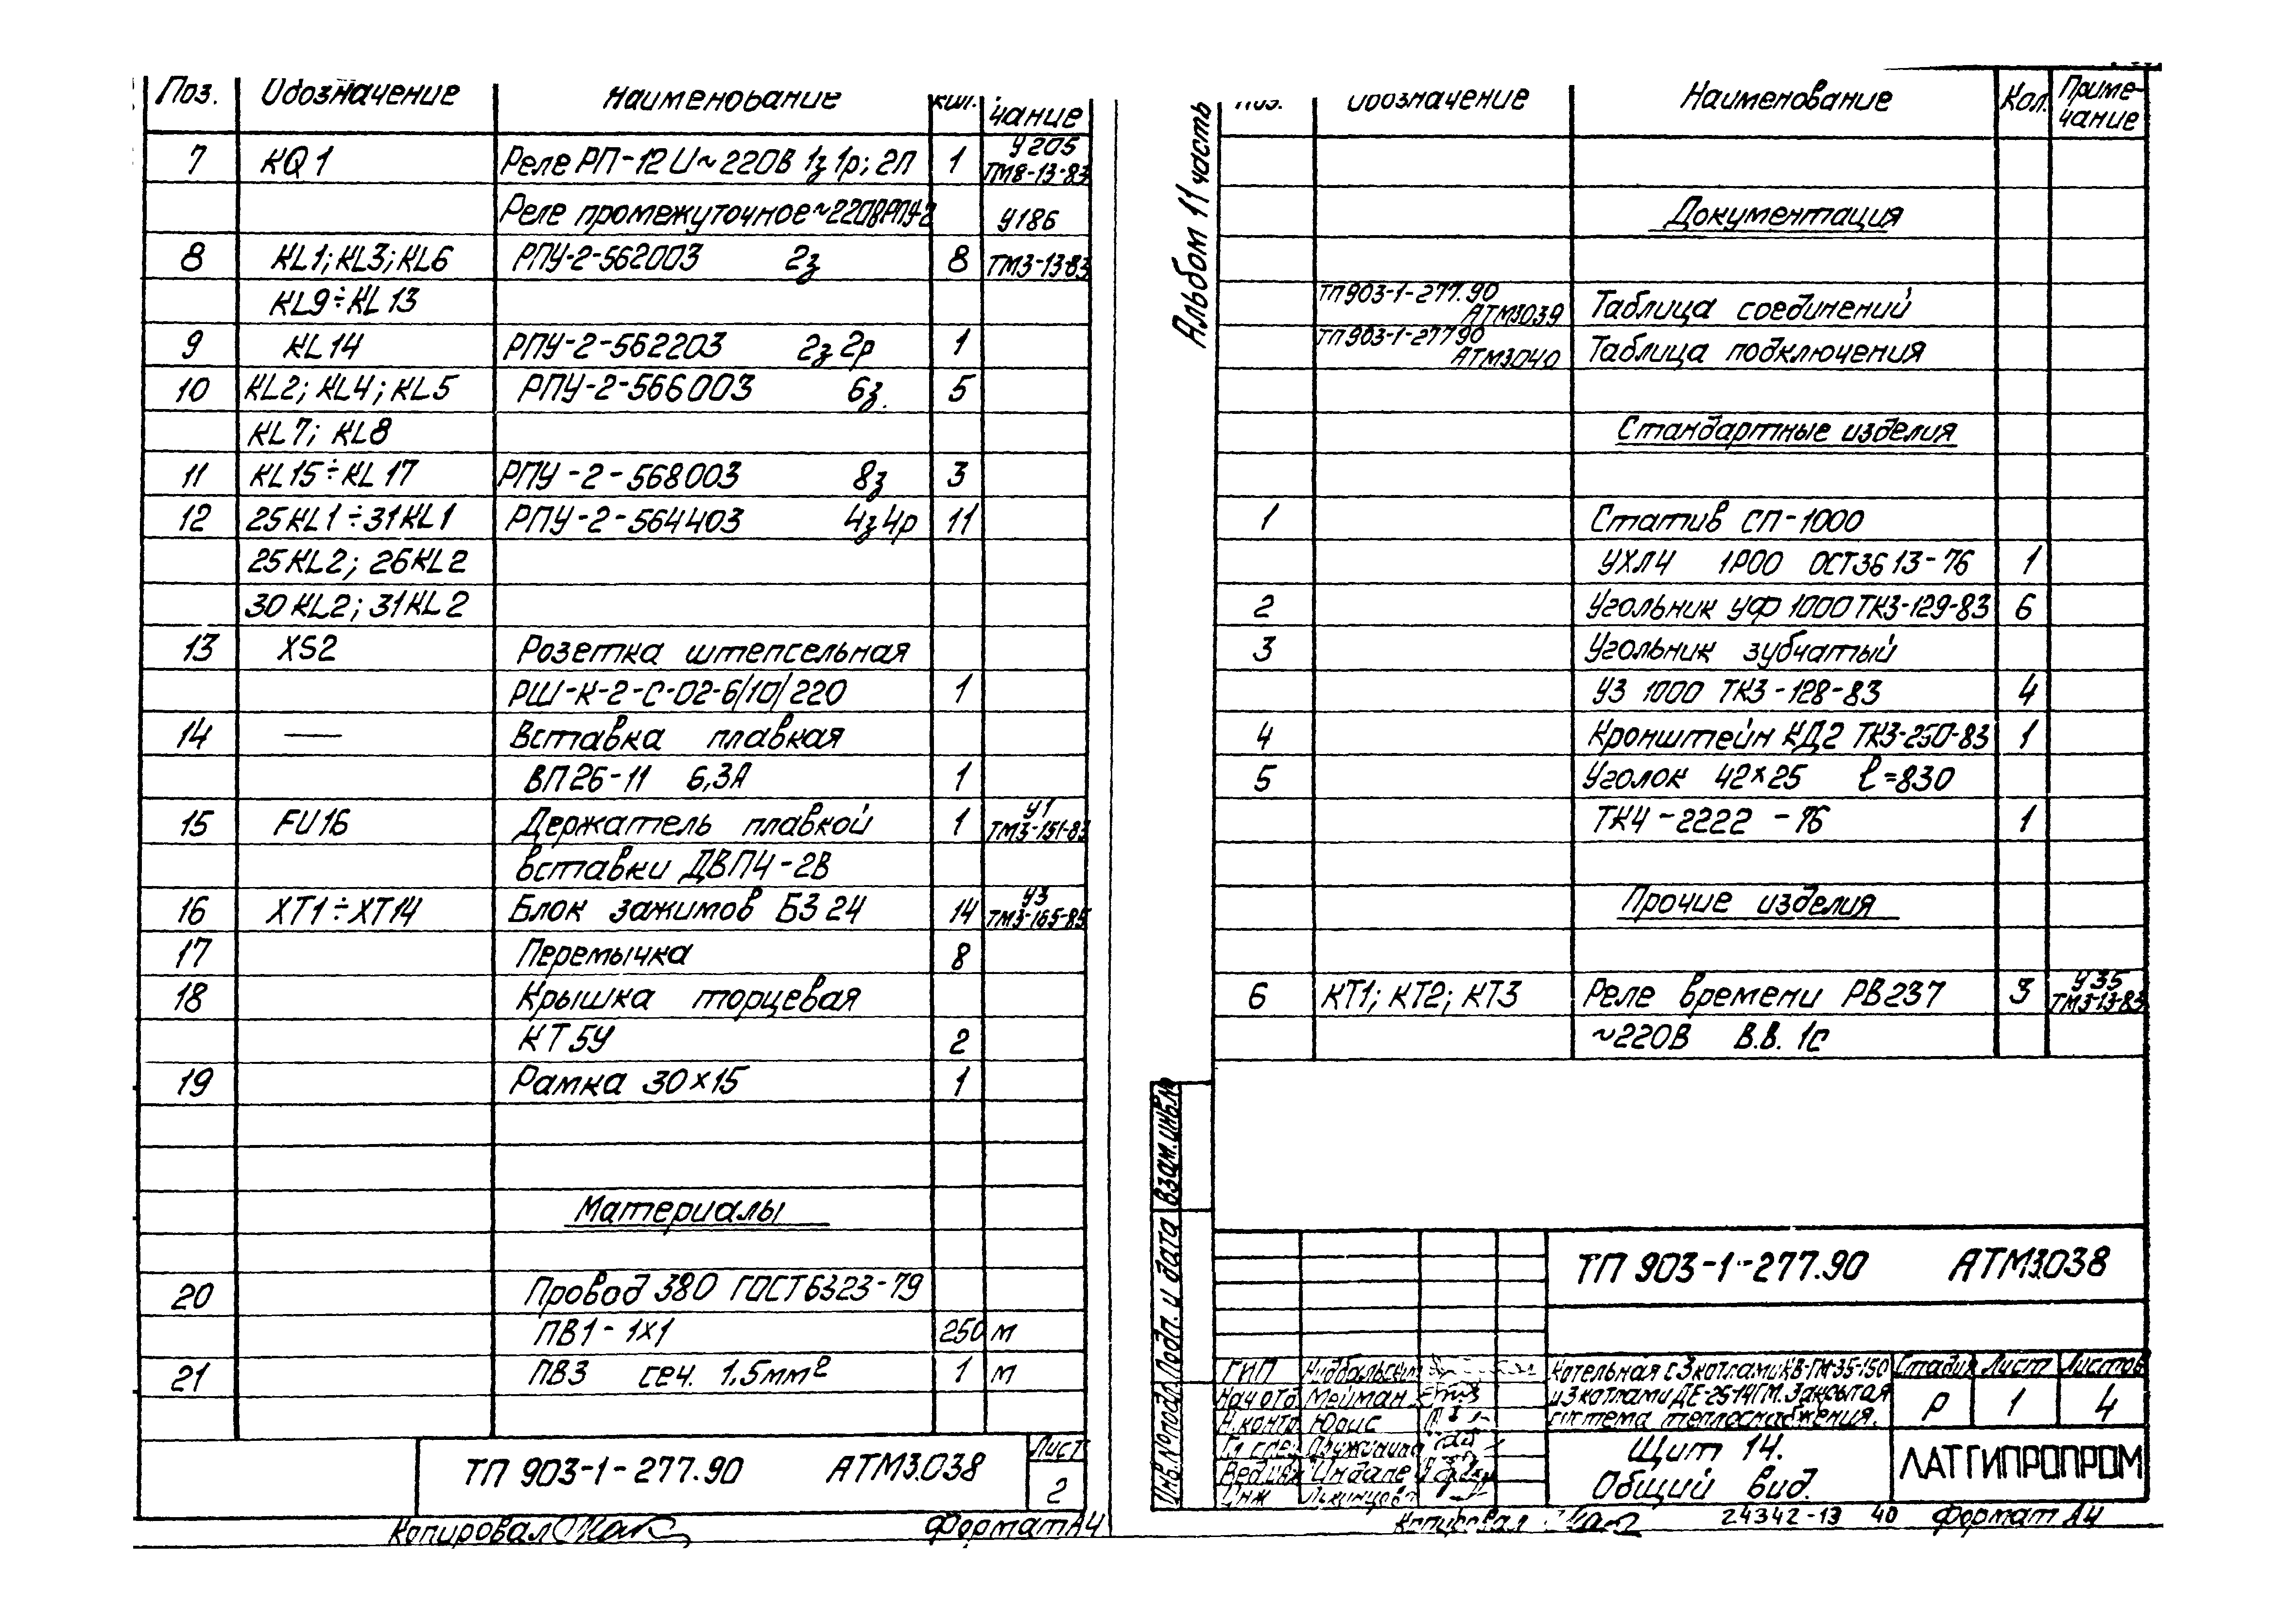 Поз. Обозначение Наименование Кол. чание
7 KQ1 Реле РП-12 U~220В 1з 1р; 2П 1 У205 ТМ8-13-83
Реле промежуточное ~220В РПУ-2 У186
8 KL1; KL3; KL6 РПУ-2-562003 2з 8 ТМ3-13-83
KL9÷KL13
9 KL14 РПУ-2-562203 2з 2р 1
10 KL2; KL4; KL5 РПУ-2-566003 6з. 5
KL7; KL8
11 KL15÷KL17 РПУ-2-568003 8з 3
12 25KL1÷31KL1 РПУ-2-564403 4з 4р 11
25KL2; 26KL2
30KL2; 31KL2
13 XS2 Розетка штепсельная
РШ-К-2-С-02-6/10/220 1
14 — Вставка плавкая
ВП26-11 6,3А 1
15 FU16 Держатель плавкой 1 У1 ТМ3-151-83
вставки ДВП4-2В
16 XT1÷XT14 Блок зажимов БЗ 24 14 У3 ТМ3-165-85
17 Перемычка 8
18 Крышка торцевая
КТ5У 2
19 Рамка 30×15 1
Материалы
20 Провод 380 ГОСТ 6323-79
ПВ1-1×1 250 м
21 ПВ3 сеч. 1,5мм² 1 м
ТП 903-1-277.90 АТМ3.038 Лист
2
Копировал Формат А4
Альбом 11 часть
Поз. Обозначение Наименование Кол. Приме-
чание
Документация
ТП903-1-277.90
АТМ3039 Таблица соединений
ТП903-1-277.90
АТМ3040 Таблица подключения
Стандартные изделия
1 Статив СП-1000
УХЛ4 1Р00 ОСТ36 13-76 1
2 Угольник УФ 1000 ТК3-129-83 6
3 Угольник зубчатый
УЗ 1000 ТК3-128-83 4
4 Кронштейн КД2 ТК3-250-83 1
5 Уголок 42×25 ℓ=830
ТК4-2222-76 1
Прочие изделия
6 KT1; KT2; KT3 Реле времени РВ237 3 У35 ТМ3-13-83
~220В В.В. 1с
Инв.№подл. Подп. и дата Взам.инв.№
ТП 903-1-277.90 АТМ3.038
ГИП
Нач отд Мейман
Н.контр Юдис
Гл спец
Вед инж Индане
Инж
Котельная с 3 котлами КВ-ГМ-35-150
и 3 котлами ДЕ-25-14ГМ. Закрытая
система теплоснабжения.
Стадия Лист Листов
Р 1 4
Щит 14.
Общий вид.
ЛАТГИПРОПРОМ
Копировал 24342-13 40 Формат А4